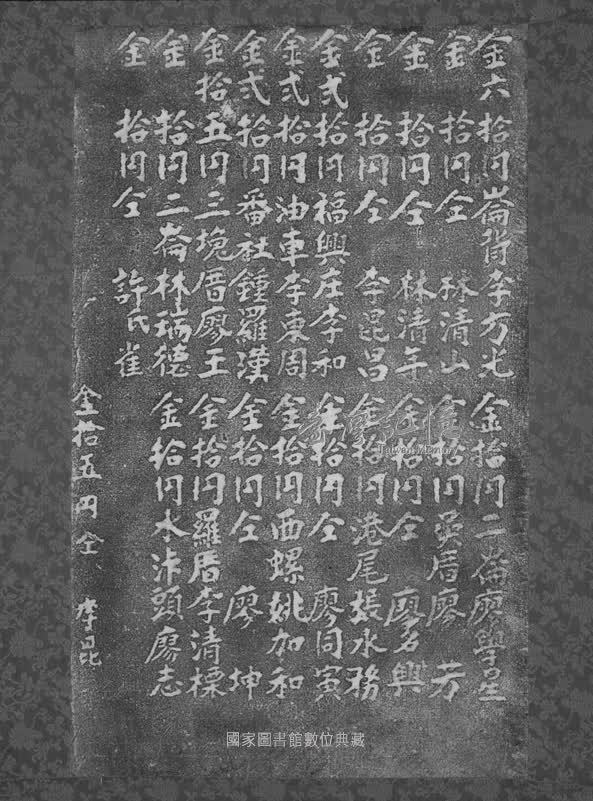 金六拾円崙背李方光
金　拾円仝　林清山
金　拾円仝　林清年
金　拾円仝　李昆昌
金弍拾円福興庄李和
金弍拾円油車李東周
金弍拾円番社鍾羅漢
金拾五円三塊厝廖王
金　拾円二崙林瑞德
金　拾円仝　許氏雀
金拾円二崙廖學星
金拾円厝廖　芳
金拾円仝　廖名興
金拾円港尾張水務
金拾円仝　廖同寅
金拾円西螺姚加和
金拾円仝　廖　坤
金拾円羅厝李清標
金拾円本沛頭廖志
金拾五円仝、李昆
臺灣記憶
Taiwan Memory
國家圖書館數位典藏